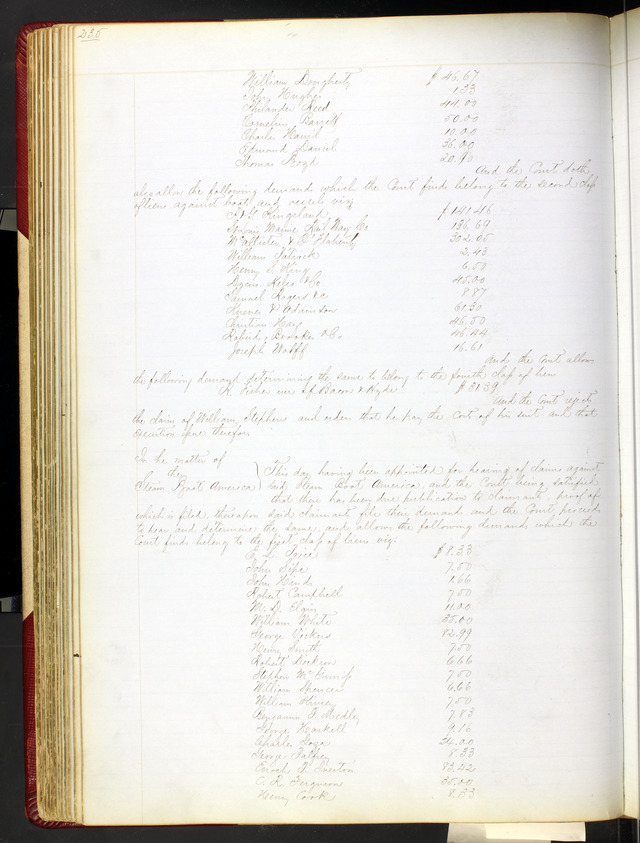 236
William Dougherty $ 46.67
John Hughes 1.33
Philander Reed 44.00
Cornelius Barrett 50.00
Charles 10.00
Edmund Daniel 36.00
Thomas Boyd 20.90
And the Court doth
also allow the following demands which the Court finds belong to the second class
of liens against boats and vessels viz
Kingsland $ 141.46
Marine Rail Way Co 136.69
& O'Flaherty 302.05
William 2.43
Henry S. King 6.50
& Co 45.00
Samuel Rogers &c 8.87
& Adamson 61.30
Christian Hays 46.50
Brooks & Co 46.44
Joseph 16.61
and the Court allows
the following demand determining the same to belong to the fourth class of liens
use of Bacon & Hyde $ 51.39
and the Court rejects
the claim of William Stephens and orders that he pay the Cost of his suit and that
execution issue therefor.
In the matter of
the
Steam Boat America } This day having been appointed for hearing of claims against
said Steam Boat America, and the Court being satisfied
that there has been due publication to claimants, proof of
which is filed, thereupon said claimants file their demands and the Court proceeds
to hear and determine the same, and allows the following demands which the
Court finds belong to the first class of liens viz:
$ 8.33
John Sipe 7.50
John Hinds 1.66
Robert Campbell 7.50
M. D. Elgin 11.00
William White 35.00
George Vickers 82.99
Henry Smith 7.50
Robert Dickson 6.66
Stephen 7.50
William Spencer 6.66
William 7.50
Benjamin F. Medley 7.83
George Haskell 9.16
Charles 34.00
George 8.33
Enoch Overton 83.42
C. R. Ferguson 35.00
Henry Cook 8.33